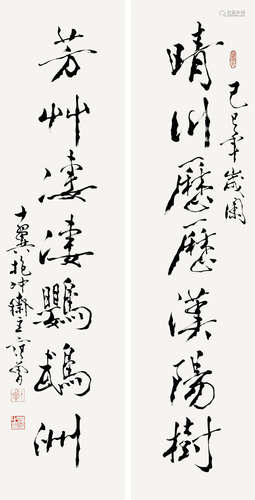 己巳年歲闌
晴川歷歷漢陽樹
芳艸淒淒鸚鵡洲
十翼抱沖齋主范曾